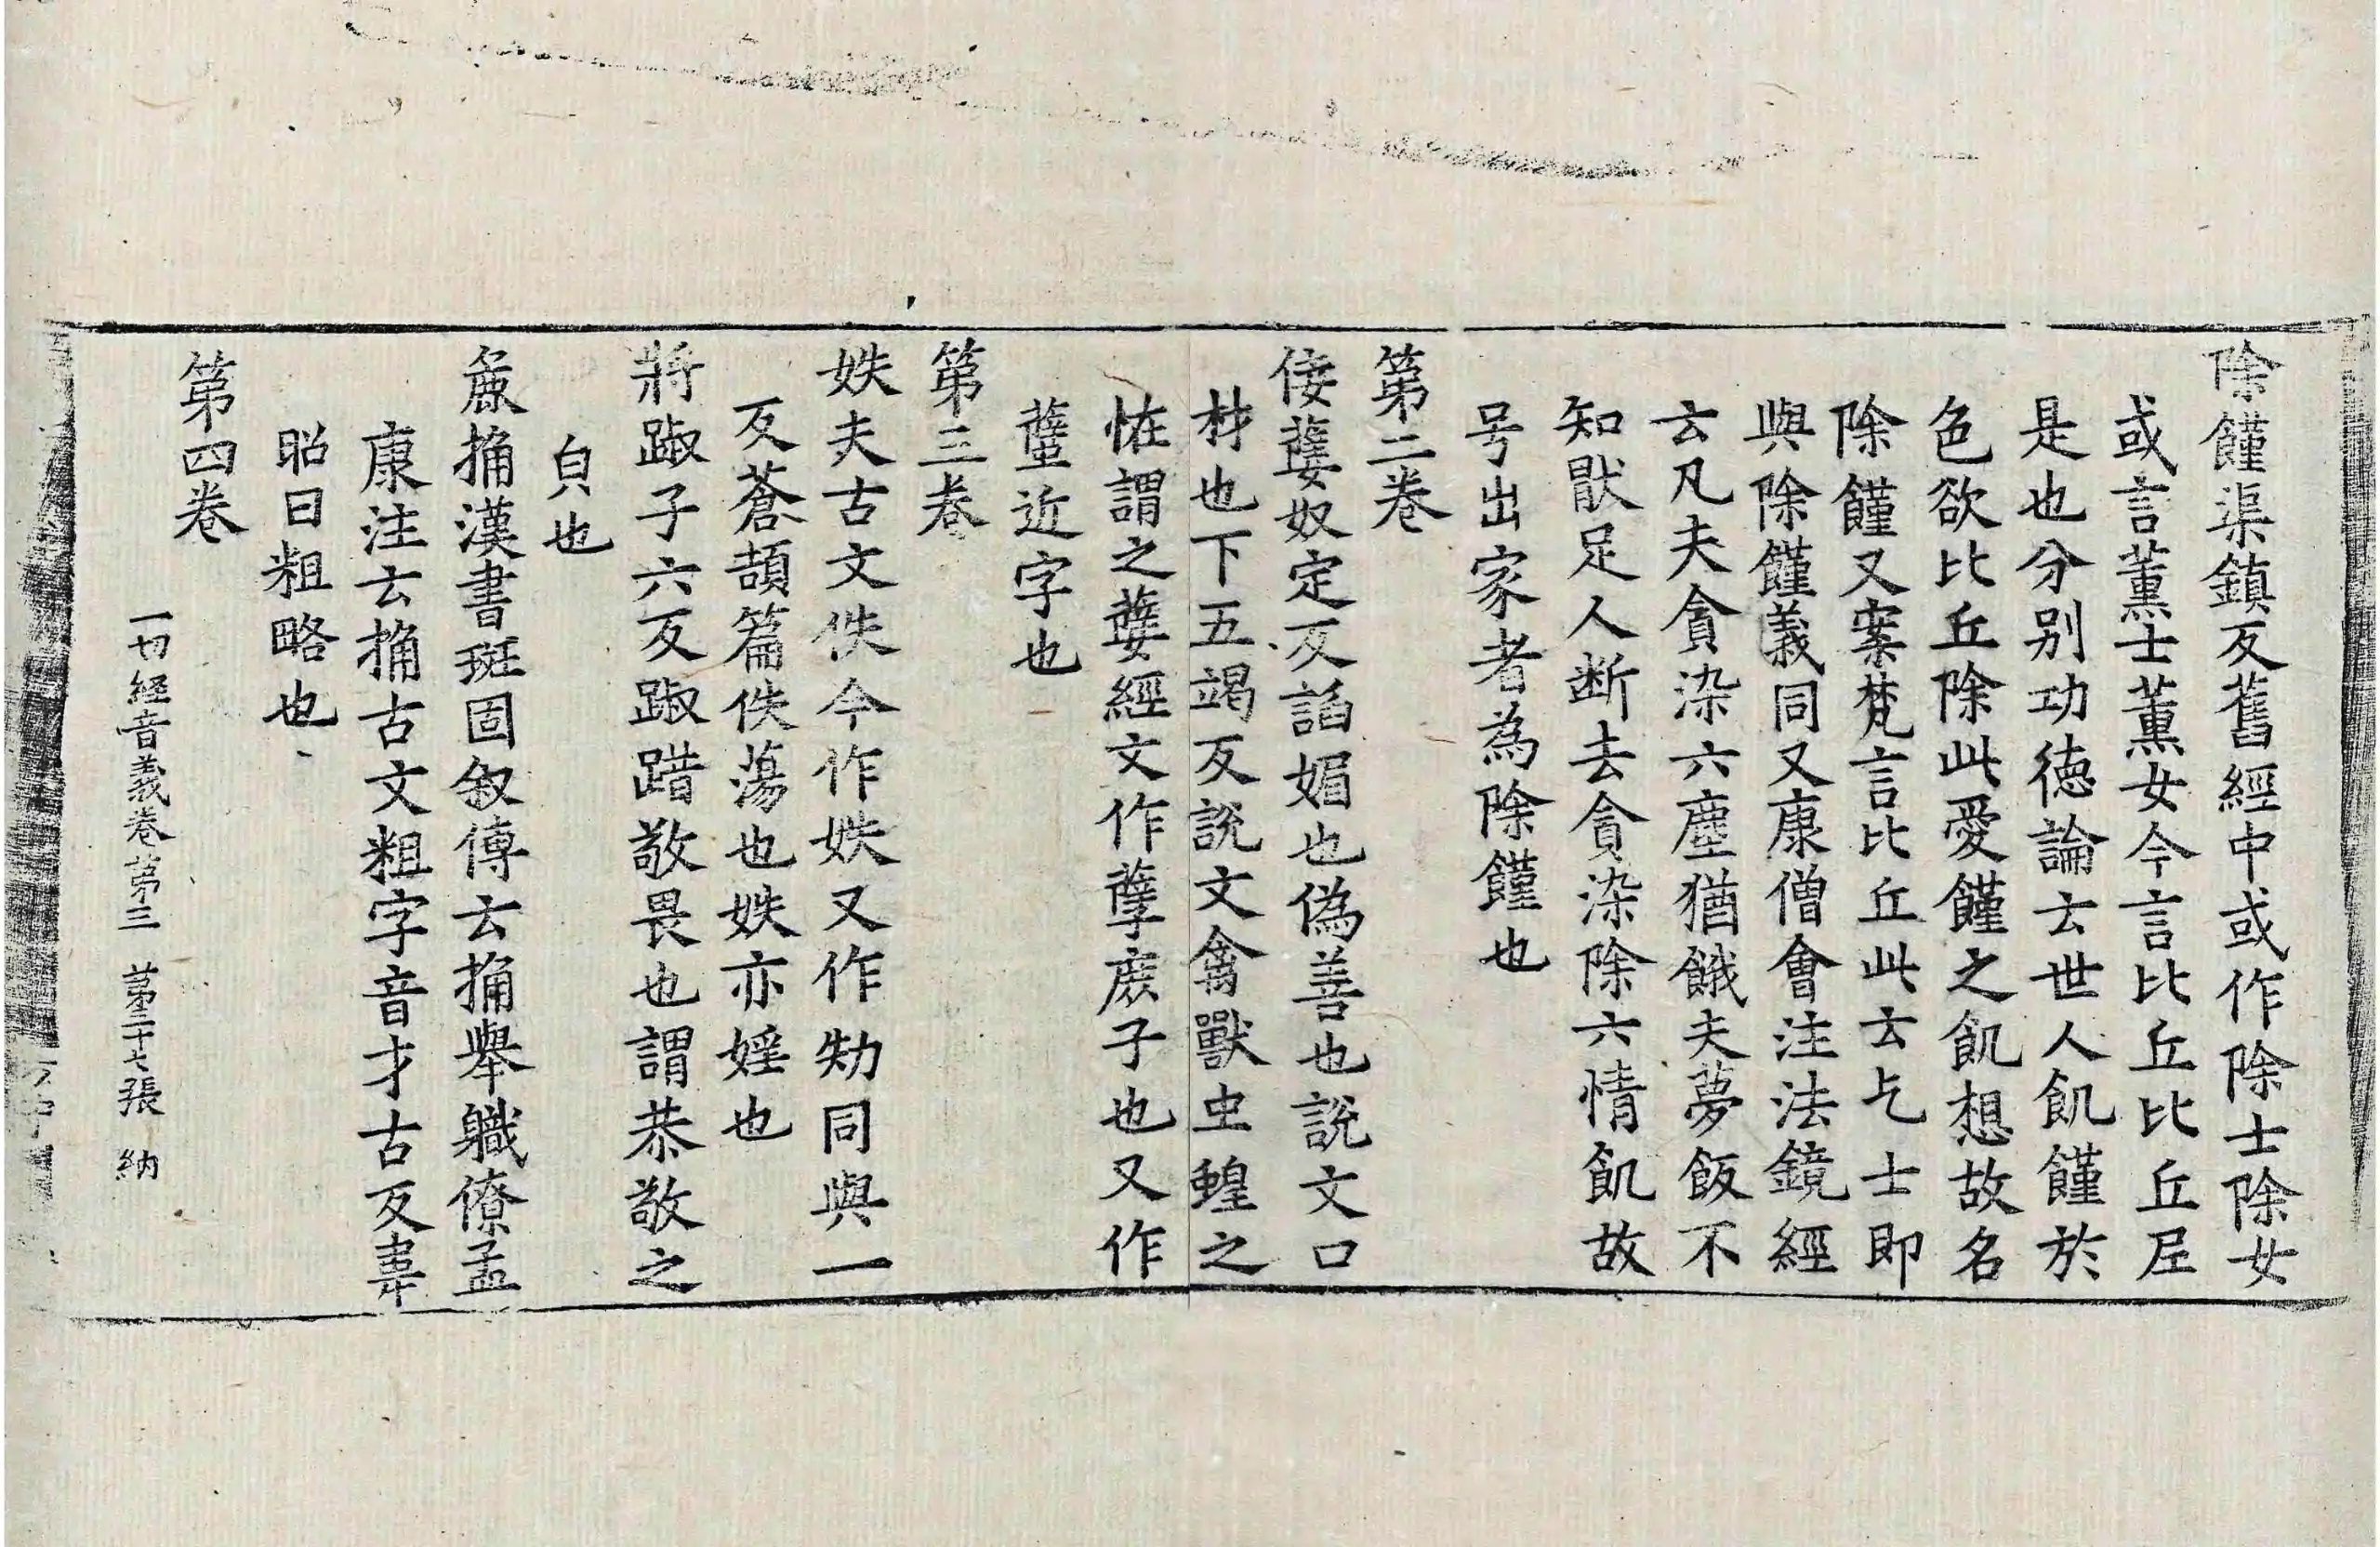 除饉渠鎮反舊經中或作除士除女
或言薰士薰女今言比丘比丘尼
是也分别功徳論云世人飢饉於
色欲比丘除此愛饉之飢想故名
除饉又案梵言比丘此云乞士即
與除饉義同又康僧會注法鏡經
云凡夫貪染六塵猶餓夫夢飯不
知猒足人断去貪染除六情飢故
号出家者為除饉也
第二卷
佞㜸奴定反謟媚也偽善也說文口
材也下五竭反說文禽獸虫蝗之
恠謂之㜸經文作孽庻子也又作
蠥近字也
第三卷
妷夫古文佚今作妷又作劮同與一
反蒼頡篇佚蕩也妷亦婬也
將踧子六反踧踖敬畏也謂恭敬之
皃也
麁捔漢書班固叙傳云捔舉軄僚孟
康注云捔古文粗字音才古反韋
昭曰粗略也
第四卷
一切経音義卷第三 第二十七張 納